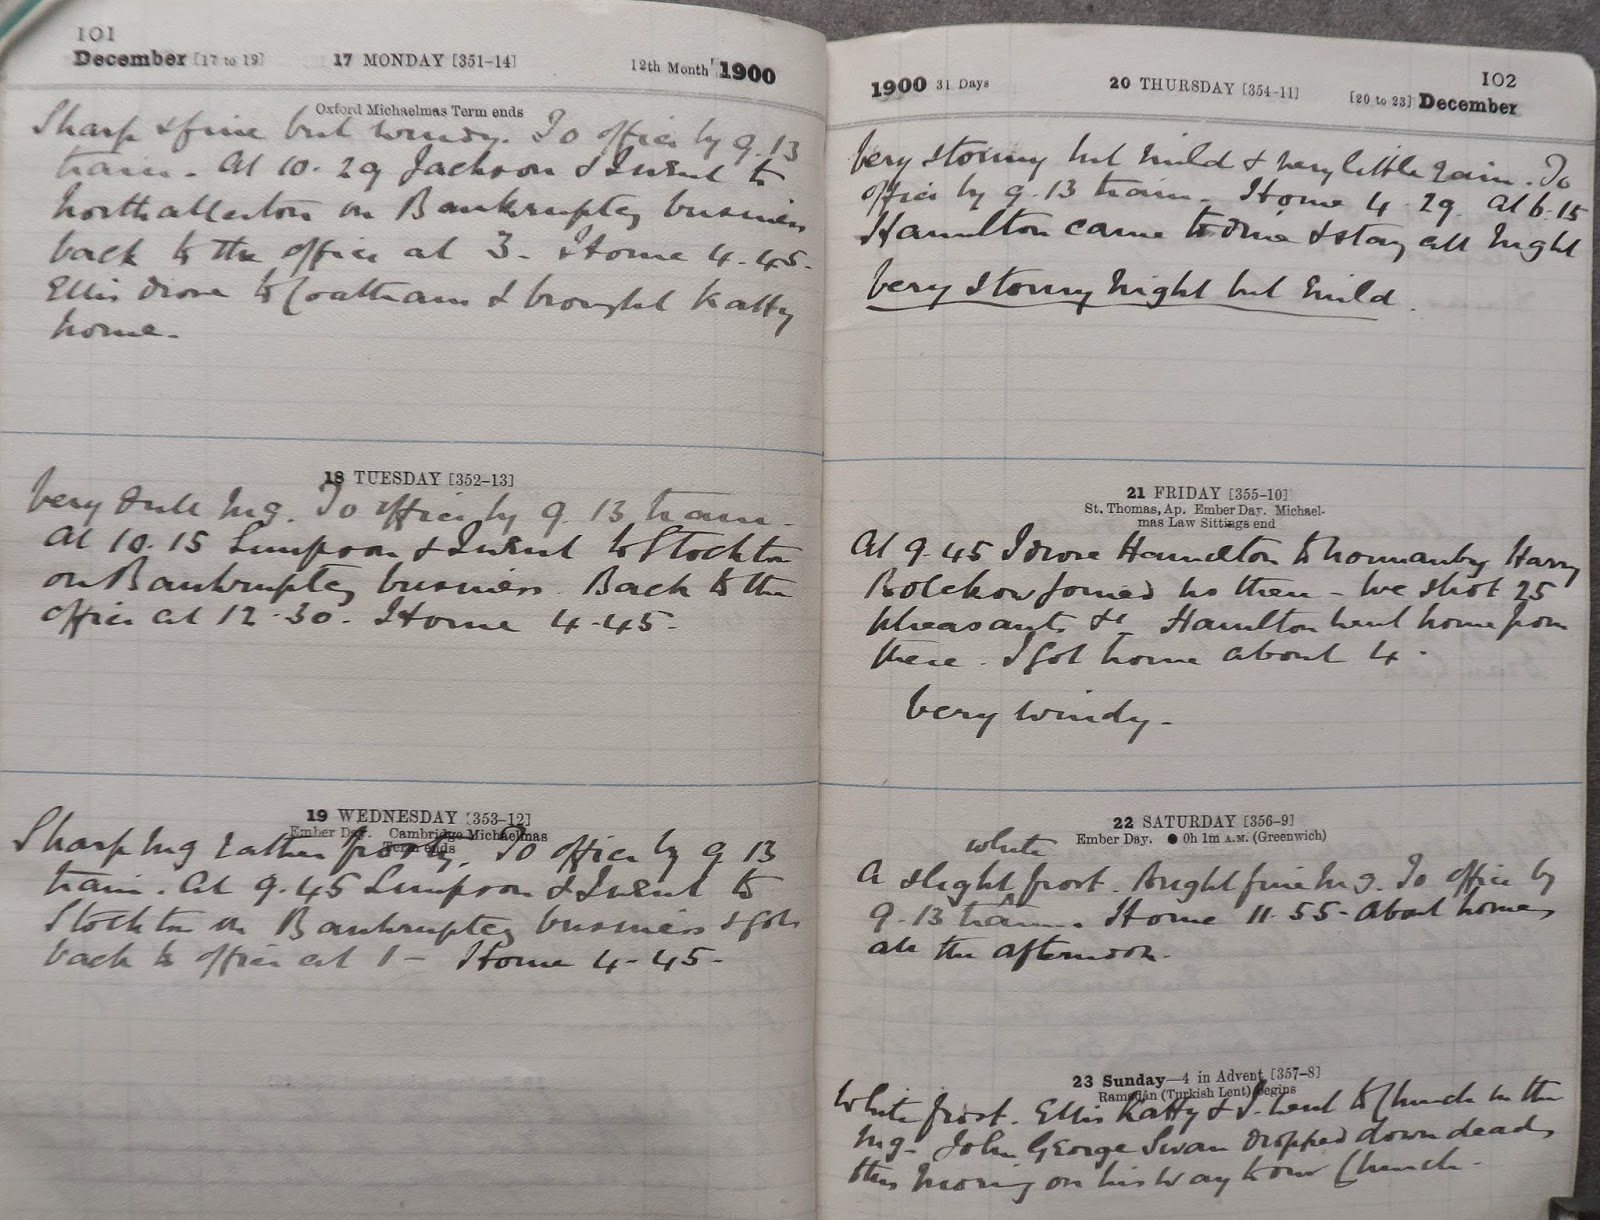 101
December [17 to 19] 17 MONDAY [351-14] 12th Month 1900
Oxford Michaelmas Term ends
Sharp & fine but windy. To office by 9.13
train. At 10.29 Jackson & I went to
Northallerton on Bankruptcy business
back to the office at 3. Home 4.45.
Ellis drove to Coatham & brought Katty
home.
18 TUESDAY [352-13]
Very dull Mg. To office by 9.13 train.
At 10.15 Simpson & I went to Stockton
on Bankruptcy business. Back to the
office at 12.30. Home 4.45.
19 WEDNESDAY [353-12]
Ember Day. Cambridge Michaelmas
Term ends
Sharp Mg rather frosty. To office by 9 13
train. At 9.45 Simpson & I went to
Stockton on Bankruptcy business & got
back to office at 1 - Home 4-45-
102
1900 31 Days 20 THURSDAY [354-11] [20 to 23] December
Very stormy but mild & very little rain. To
office by 9.13 train. Home 4.29. At 6.15
Hamilton came to dine & stay all night
Very stormy night but mild.
21 FRIDAY [355-10]
St. Thomas, Ap. Ember Day. Michael-
mas Law Sittings end
At 9.45 I drove Hamilton to Normanby Harry
Bolckow joined us there - We shot 25
pheasants &c Hamilton went home from
there. I got home about 4.
Very windy.
22 SATURDAY [356-9]
Ember Day. ● 0h 1m A.M. (Greenwich)
white
A slight frost. Bright fine Mg. To office by
9.13 train. Home 11.55- About home
all the afternoon.
23 Sunday—4 in Advent [357-8]
Ramadân (Turkish Lent) begins
White frost. Ellis Katty & I went to Church in the
Mg. John George Swan dropped down dead
this morning on his way to our Church.